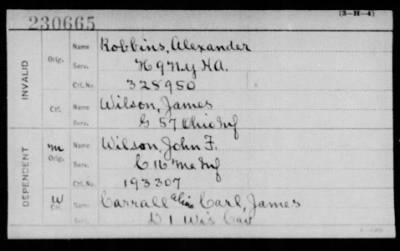 230665
(3-H-4)
INVALID
Orig.
Name Robbins, Alexander
Serv. K 9 N.Y. H.A.
Ctf. No. 328950
Ctf.
Name Wilson, James
Serv. G 57 Ohio Inf
DEPENDENT
m
Orig.
Name Wilson, John F.
Serv. C 16 Me Inf
Ctf. No. 193307
W
Ctf.
Name Carrall alias Carl, James
Serv. D 1 Wis Cav